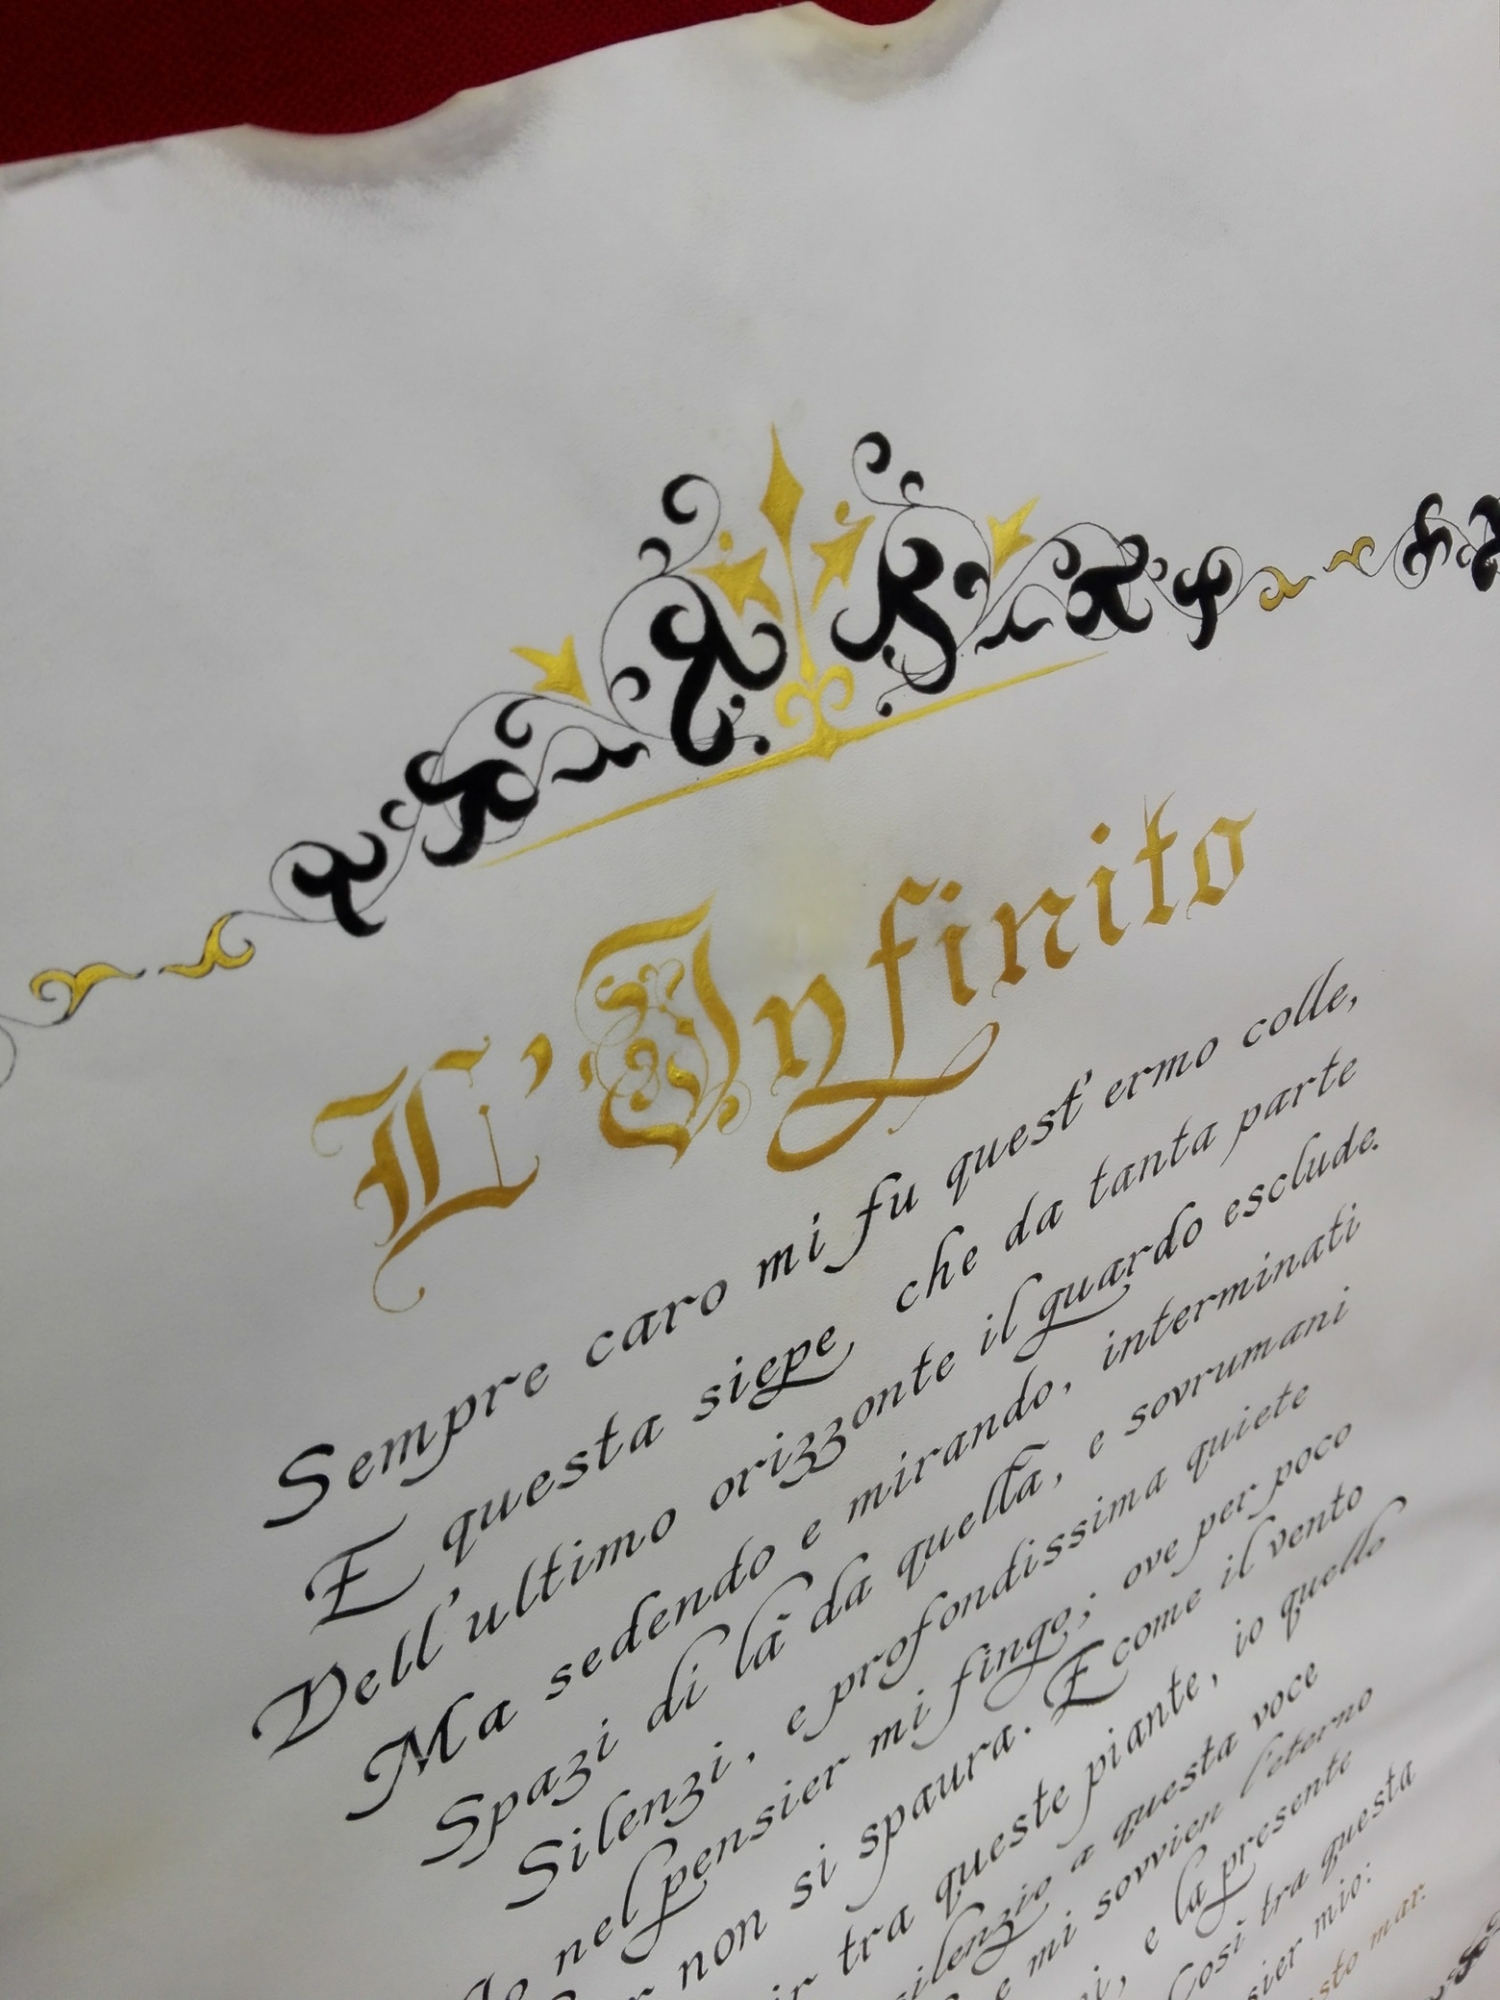 L'Infinito
Sempre caro mi fu quest'ermo colle,
E questa siepe, che da tanta parte
Dell'ultimo orizzonte il guardo esclude.
Ma sedendo e mirando, interminati
Spazi di là da quella, e sovrumani
Silenzi, e profondissima quiete
Io nel pensier mi fingo; ove per poco
r non si spaura. E come il vento
ir tra queste piante, io quello
silenzio a questa voce
e mi sovvien l'eterno
i, e la presente
Così tra questa
sier mio:
sto mar.